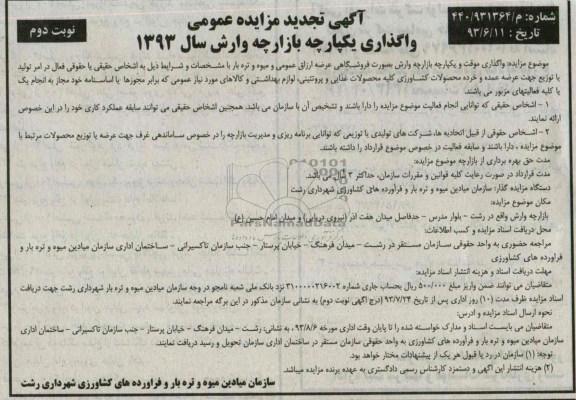 شماره: م/۴۴۰/۹۳۱۳۶۴
تاریخ : ۹۳/۶/۱۱
آگهی تجدید مزایده عمومی
واگذاری یکپارچه بازارچه وارش سال ۱۳۹۳
نوبت دوم
موضوع مزایده: واگذاری موقت و یکپارچه بازارچه وارش بصورت فروشگاهی عرضه ارزاق عمومی و میوه و تره بار با مشخصات و شرایط ذیل به اشخاص حقیقی یا حقوقی فعال در امر تولید
یا توزیع جهت عرضه عمده و خرده محصولات کشاورزی کلیه محصولات غذایی و پروتئینی، لوازم بهداشتی و کالاهای مورد نیاز عمومی که برابر مجوزها یا اساسنامه خود مجاز به انجام یک
یا کلیه فعالیتهای مزبور می باشند.
۱ – اشخاص حقیقی که توانایی انجام فعالیت موضوع مزایده را دارا باشند و تشخیص آن با سازمان می باشد. همچنین اشخاص حقیقی می توانند سابقه عملکرد کاری خود را در این خصوص
ارائه نمایند.
۲ – اشخاص حقوقی از قبیل اتحادیه ها، شرکت های تولیدی یا توزیعی که توانایی برنامه ریزی و مدیریت بازارچه را در خصوص ساماندهی غرف جهت عرضه یا توزیع محصولات مرتبط با
موضوع مزایده ، دارا باشند و سابقه فعالیت در خصوص موضوع قرارداد را داشته باشند.
مدت حق بهره برداری از بازارچه موضوع مزایده:
مدت قرارداد در صورت رعایت کلیه قوانین و مقررات سازمان، حداکثر ۳ سال می باشد.
دستگاه مزایده گذار: سازمان میادین میوه و تره بار و فرآورده های کشاورزی شهرداری رشت
مکان موضوع مزایده:
بازارچه وارش واقع در رشت – بلوار مدرس – حدفاصل میدان هفت آذر (نیروی دریایی) و میدان امام حسین (ع)
محل دریافت اسناد مزایده و کسب اطلاعات:
مراجعه حضوری به واحد حقوقی سازمان مستقر در رشت – میدان فرهنگ – خیابان پرستار – جنب سازمان تاکسیرانی – ساختمان اداری سازمان میادین میوه و تره بار و
فرآورده های کشاورزی
مهلت دریافت اسناد و هزینه انتشار اسناد مزایده:
متقاضیان می توانند ضمن واریز مبلغ ۵۰۰/۰۰۰ ریال بحساب جاری شماره ۳۱۰۰۰۰۰۲۱۶۰۰۲ نزد بانک ملی شعبه نامجو در وجه سازمان میادین میوه و تره بار شهرداری رشت جهت دریافت
اسناد مزایده ظرف مدت (۱۰) روز اداری پس از تاریخ ۹۳/۷/۲۴ (درج آگهی نوبت دوم) به نشانی سازمان مذکور در این برگه مراجعه نمایند.
نحوه ارسال اسناد مزایده و آدرس:
متقاضیان می بایست اسناد و مدارک خواسته شده را تا پایان وقت اداری مورخه ۹۳/۸/۶، به نشانی: رشت – میدان فرهنگ – خیابان پرستار – جنب سازمان تاکسیرانی – ساختمان اداری
سازمان میادین میوه و تره بار و فرآورده های کشاورزی به واحد حقوقی سازمان مستقر در ساختمان اداری سازمان تحویل و رسید دریافت نمایند.
توجه: (۱) سازمان در رد یا قبول هر یک از پیشنهادات مختار خواهد بود.
(۲) هزینه انتشار این آگهی و دستمزد کارشناس رسمی دادگستری به عهده برنده مزایده میباشد.
سازمان میادین میوه و تره بار و فرآورده های کشاورزی شهرداری رشت